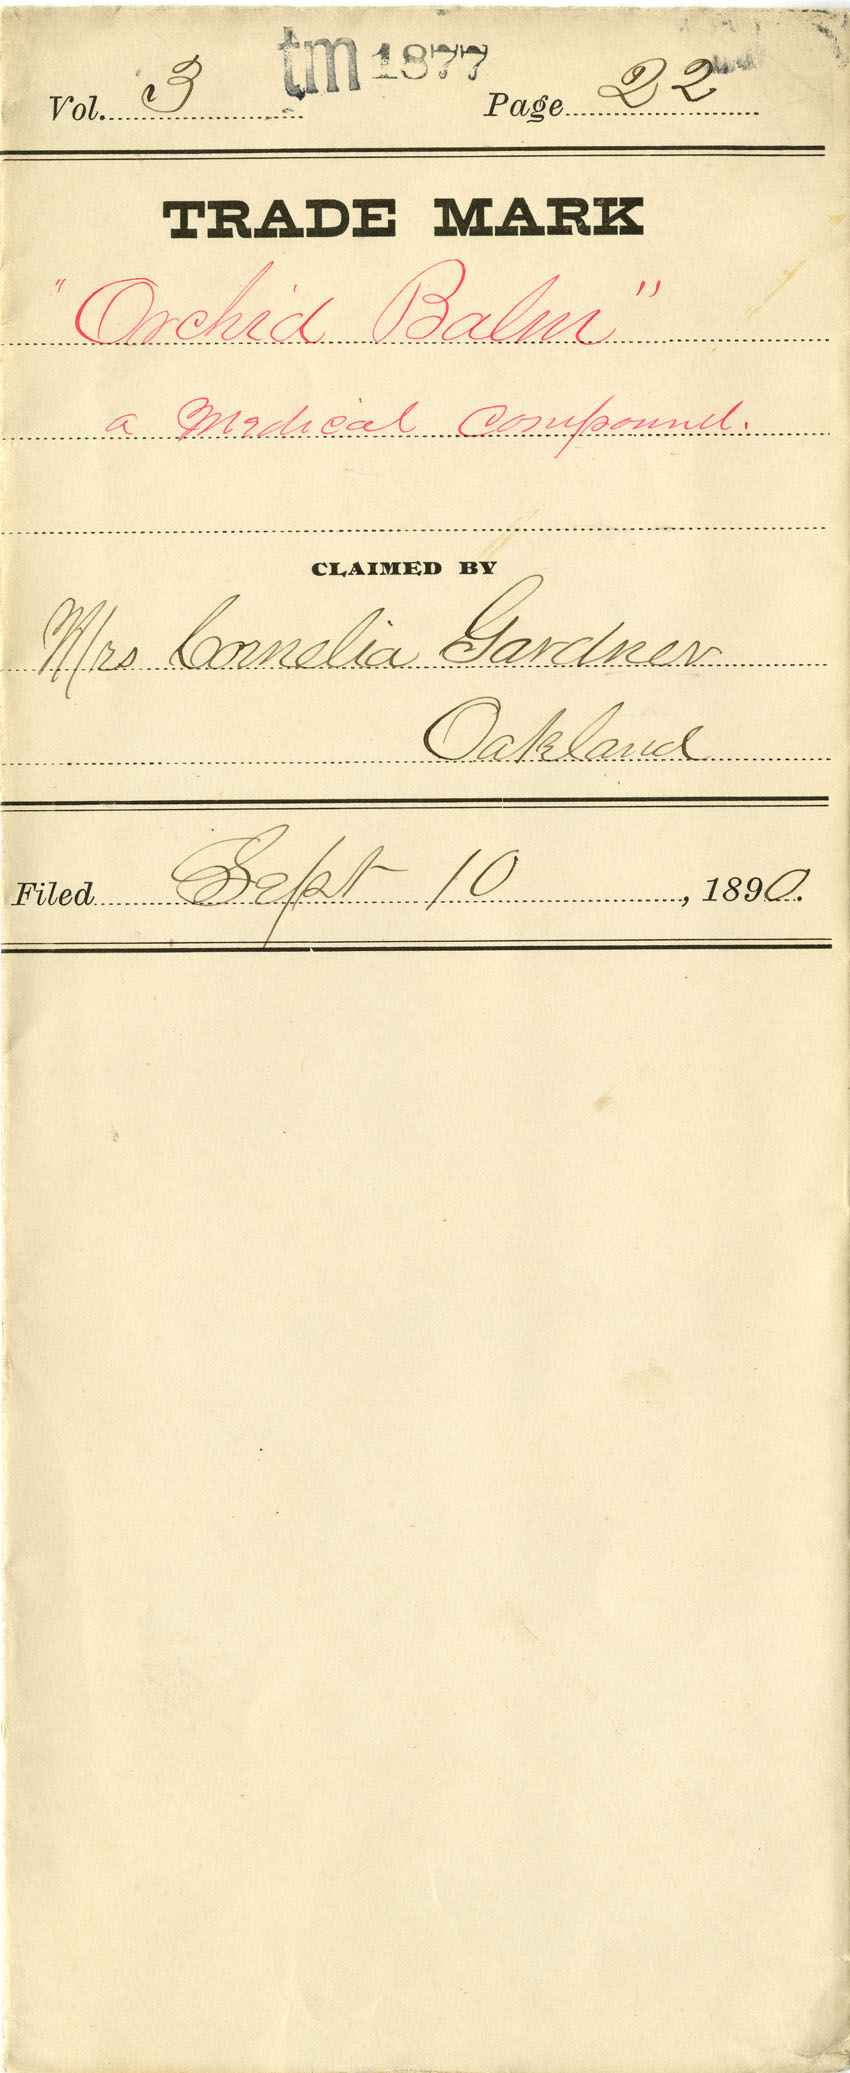 tm 1877
Vol. 3 Page 22
TRADE MARK
"Orchid Balm"
a Medical Compound.
CLAIMED BY
Mrs Cornelia Gardner
Oakland
Filed Sept 10, 1890.